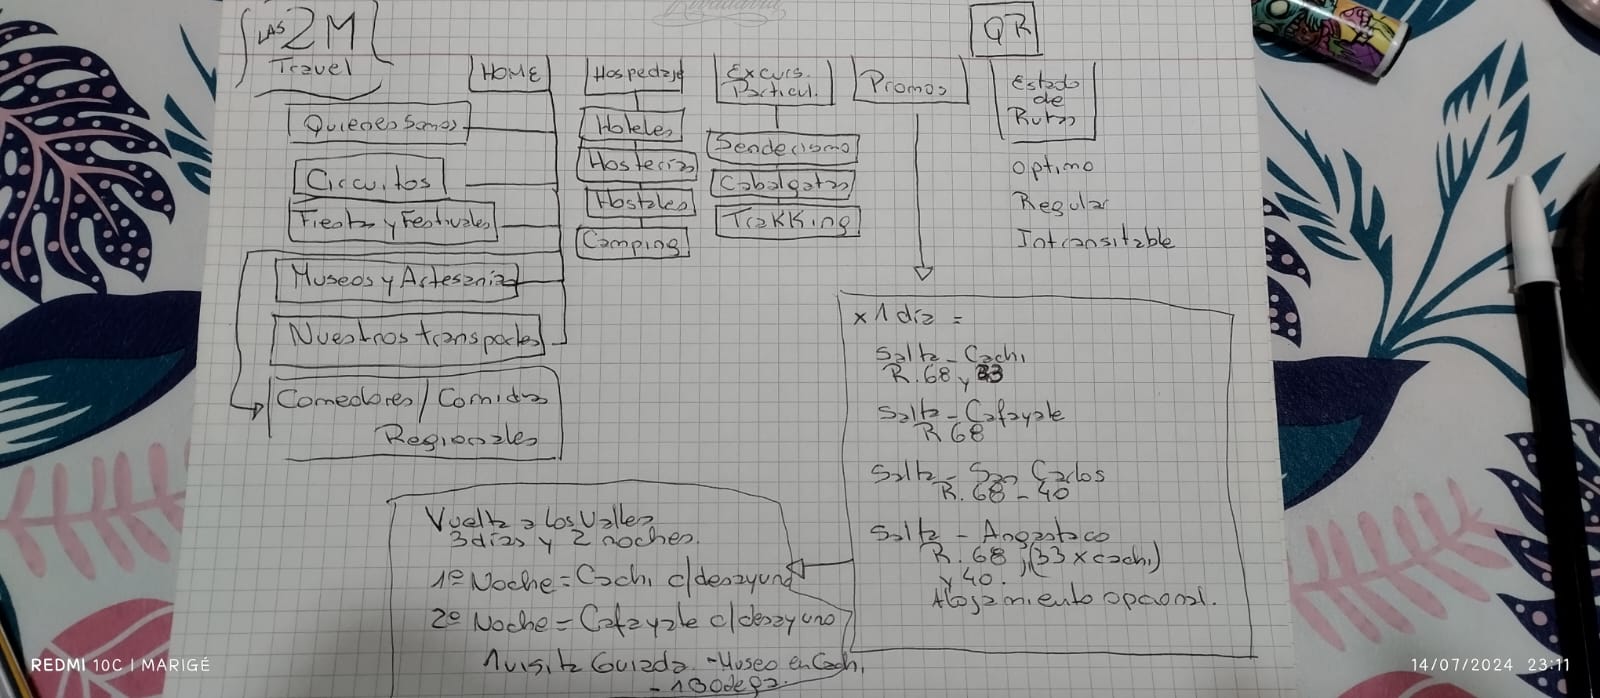 LAS 2M
Travel
QR
HOME
Quienes Somos
Circuitos
Fiestas y Festivales
Museos y Artesanias
Nuestros transportes
Comedores / Comidas
Regionales
Hospedaje
Hoteles
Hosterias
Hostales
Camping
Excurs.
Particul.
Senderismo
Cabalgatas
Trakking
Promos
Estado
de
Rutas
Optimo
Regular
Intransitable
x 1 dia =
Salta - Cachi
R. 68 y 33
Salta - Cafayate
R 68
Salta - San Carlos
R. 68 - 40
Salta - Angastaco
R. 68, (33 x cachi)
y 40.
Alojamiento opcional.
Vuelta a los Valles
3 dias y 2 noches.
1º Noche = Cachi c/desayuno
2º Noche = Cafayate c/desayuno
1 visita Guiada - Museo en Cachi
- 1 Bodega.
REDMI 10C | MARIGÉ
14/07/2024 23:11